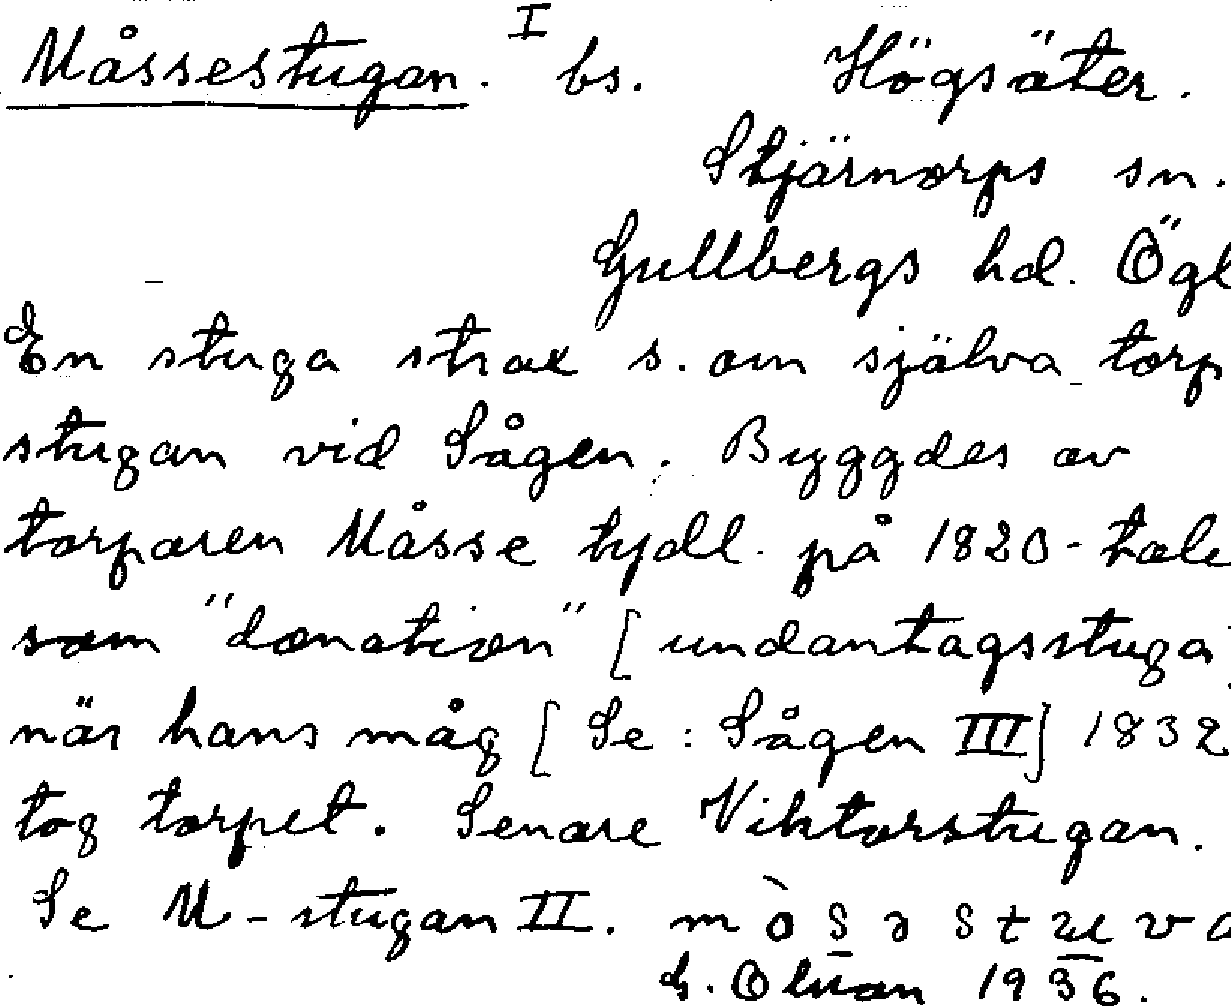 Måssestugan. I bs. Högsäter.
Stjärnorps sn.
Gullbergs hd. Ögl
En stuga strax s. om själva torp
stugan vid Sågen. Byggdes av
torparen Måsse tydl. på 1820-tale
som "donation" [undantagsstuga]
när hans måg [Se: Sågen III] 1832
tog torpet. Senare Viktorstugan.
Se M-stugan II.
1936.